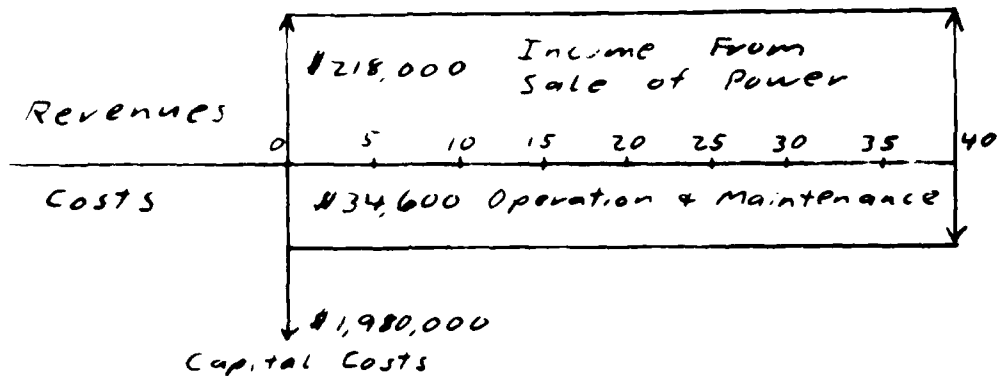 $218,000 Income From
Sale of Power
Revenues
0 5 10 15 20 25 30 35 40
Costs
$34,600 Operation & Maintenance
$1,980,000
Capital Costs